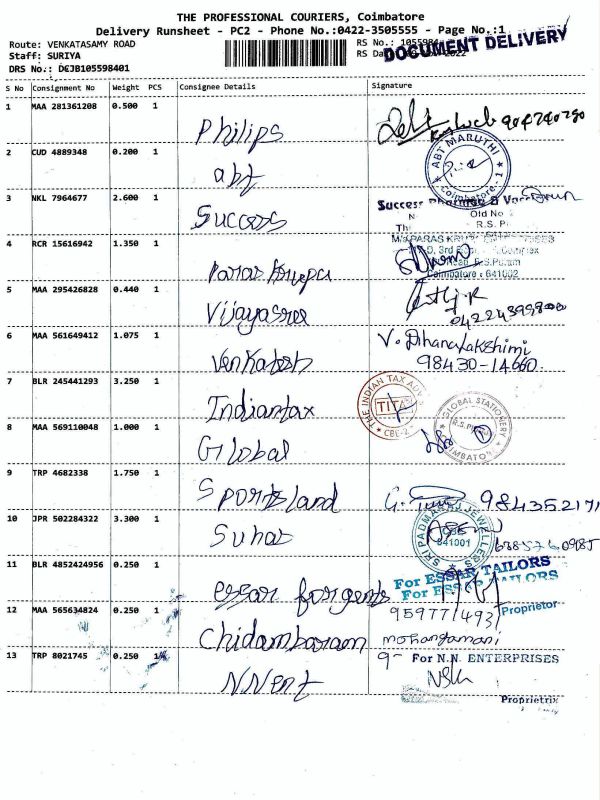 THE PROFESSIONAL COURIERS, Coimbatore
Delivery Runsheet - PC2 - Phone No.:0422-3505555 - Page No.:1
Route: VENKATASAMY ROAD
RS No.: 1055984
Staff: SURIYA
RS Da 2022
DOCUMENT DELIVERY
DRS No.: DCJB105598401
S No Consignment No Weight PCS Consignee Details Signature
1 MAA 281361208 0.500 1 Philips
2 CUD 4889348 0.200 1 abt
ABT MARUTHI Coimbatore-1
3 NKL 7964677 2.600 1 Success
Success & Old No R.S. P
4 RCR 15616942 1.350 1 Paras
M/S PARAS
R.S.Puram
Coimbatore - 641002
5 MAA 295426828 0.440 1 Vijayasree
6 MAA 561649412 1.075 1 Venkatesh V. Dhanalakshimi
98430-14660
7 BLR 245441293 3.250 1 Indiantax
THE INDIAN TAX TITA CBE-2
8 MAA 569110048 1.000 1 Global
GLOBAL STATIONERY R.S.P
9 TRP 4682338 1.750 1 Sportsland
10 JPR 502284322 3.300 1 Suhas
SRI PADMARAJ JEWELLERS CBE 641001
11 BLR 4852424956 0.250 1 essar for gents
For ESSAR TAILORS
For ESSAR TAILORS
Proprietor
12 MAA 565634824 0.250 1 Chidambaram mohangamani
13 TRP 8021745 0.250 1 NNent
For N.N. ENTERPRISES
Proprietrix